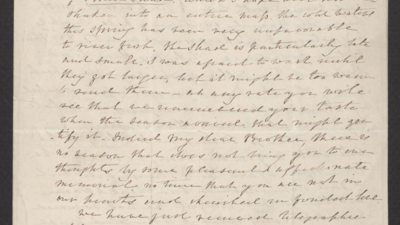 shaken into an entire mass the cold waters
this Spring has been very unfavorable
to river fish, the Shad is particularly late
and small. I was afraid to wait until
they got larger, but it might be too warm
to send them - at any rate you will
see that we remembered your taste
when the season arrived that might gra
tify it. Indeed my dear Brother, there is
no season that does not bring you to our
thoughts by some pleasant & affectionate
memorial no time that you are not in
our hearts and cherished in fondest love
we have just received